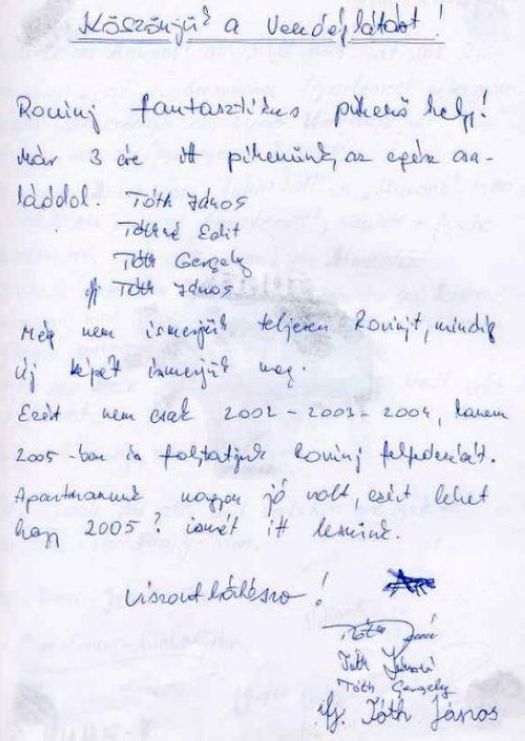 Köszönjük a Vendéglátást!
Rovinj fantasztikus pihenő hely!
Már 3 éve itt pihenünk, az egész csa-
láddal. Tóth János
Tóthné Edit
Tóth Gergely
ifj Tóth János
Még nem ismerjük teljesen Rovinjt, mindig
új képét ismerjük meg.
Ezért nem csak 2002 - 2003 - 2004, hanem
2005-ban is folytatjuk Rovinj felfedezését.
Apartmanunk nagyon jó volt, ezért lehet
hogy 2005? ismét itt leszünk.
Viszontlátásra!
Tóth
Tóth Jánosné
Tóth Gergely
ifj. Tóth János